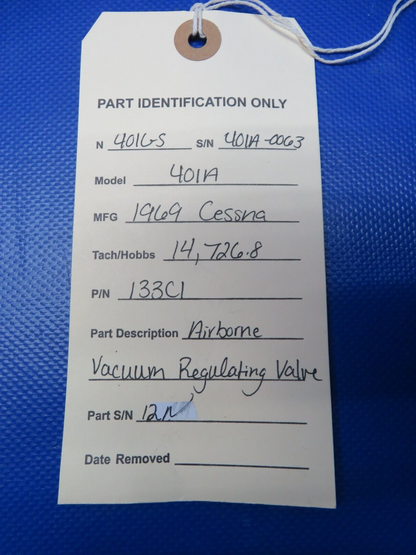 PART IDENTIFICATION ONLY
N 401GS S/N 401A-0063
Model 401A
MFG 1969 Cessna
Tach/Hobbs 14,726.8
P/N 133C1
Part Description Airborne
Vacuum Regulating Valve
Part S/N
Date Removed